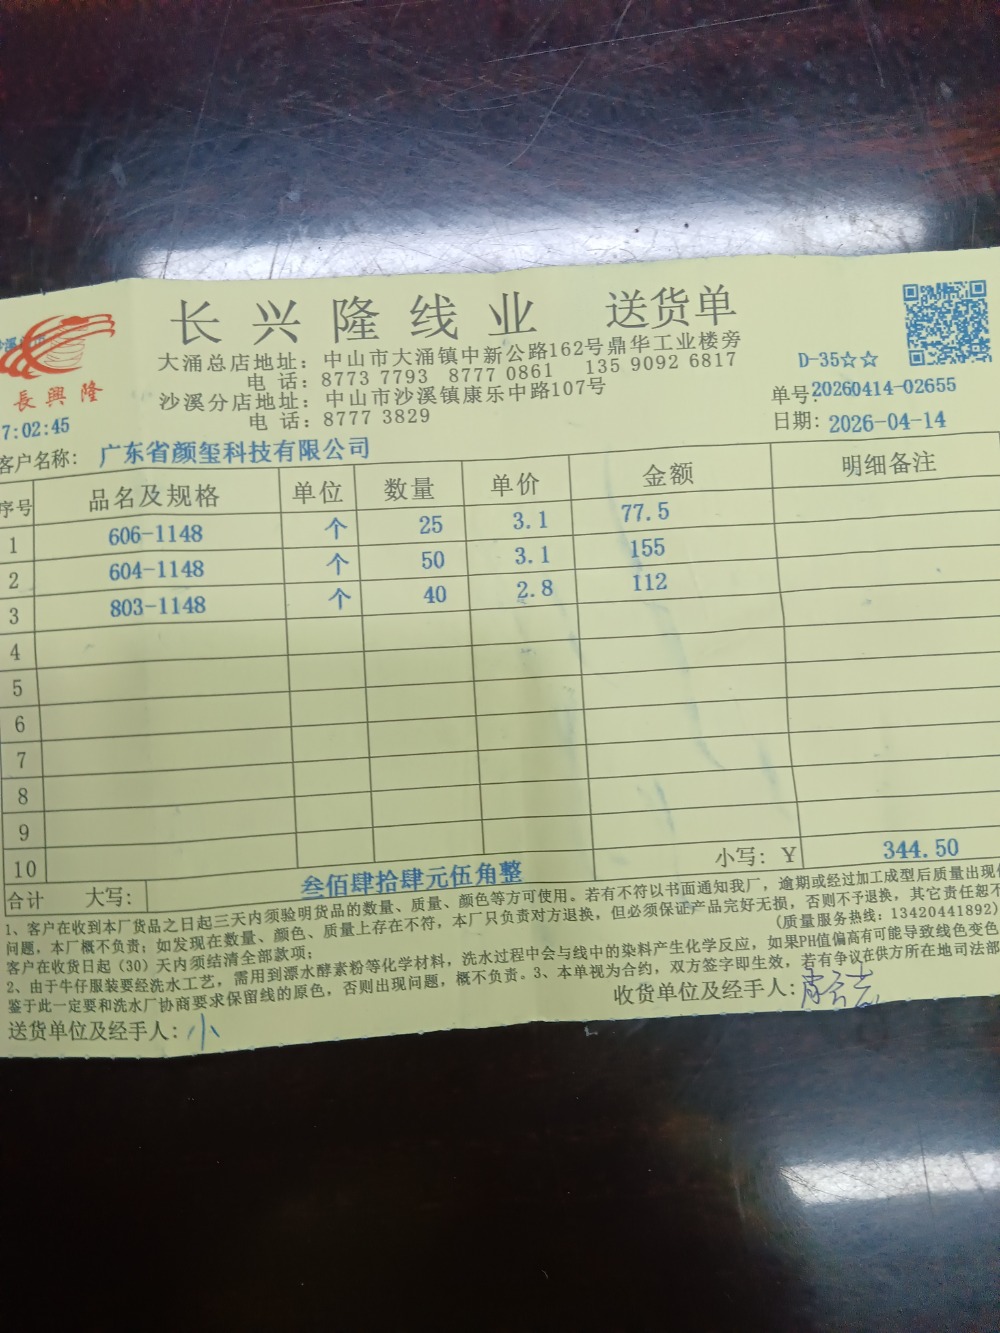 长兴隆线业 送货单
大涌总店地址：中山市大涌镇中新公路162号鼎华工业楼旁
电 话：8773 7793 8777 0861 135 9092 6817
沙溪分店地址：中山市沙溪镇康乐中路107号
电 话：8777 3829
長興隆
7:02:45
D-35☆☆
单号:20260414-02655
日期: 2026-04-14
客户名称: 广东省颜玺科技有限公司
序号 品名及规格 单位 数量 单价 金额 明细备注
1 606-1148 个 25 3.1 77.5
2 604-1148 个 50 3.1 155
3 803-1148 个 40 2.8 112
4
5
6
7
8
9
10
合计 大写: 叁佰肆拾肆元伍角整 小写: ¥ 344.50
1、客户在收到本厂货品之日起三天内须验明货品的数量、质量、颜色等方可使用。若有不符以书面通知我厂，逾期或经过加工成型后质量出现
问题，本厂概不负责；如发现在数量、颜色、质量上存在不符，本厂只负责对方退换，但必须保证产品完好无损，否则不予退换，其它责任恕不
客户在收货日起（30）天内须结清全部款项；
(质量服务热线: 13420441892)
2、由于牛仔服装要经洗水工艺，需用到漂水酵素粉等化学材料，洗水过程中会与线中的染料产生化学反应，如果PH值偏高有可能导致线色变色
鉴于此一定要和洗水厂协商要求保留线的原色，否则出现问题，概不负责。3、本单视为合约，双方签字即生效，若有争议在供方所在地司法部
送货单位及经手人: 小
收货单位及经手人: